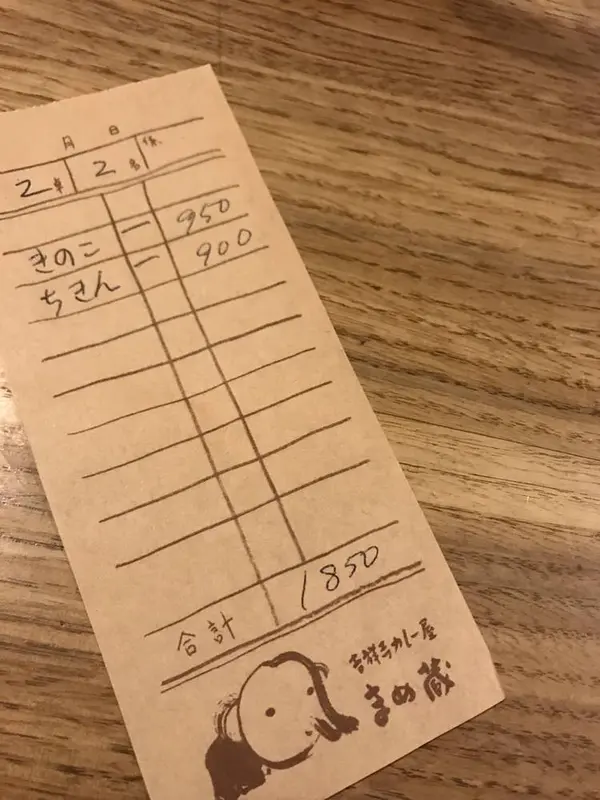 月 日
2卓 2名 係
きのこ 一 950
ちきん 一 900
合計 1850
吉祥寺カレー屋
まめ蔵